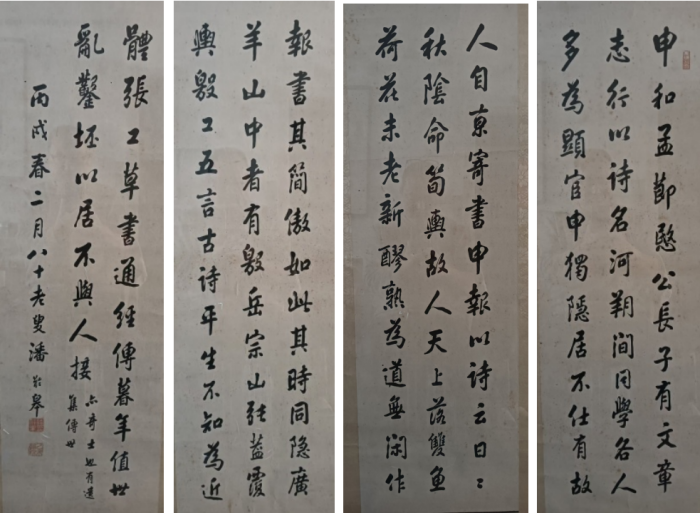 申和孟節愍公長子有文章
志行以詩名河朔間同學名人
多為顯官申獨隱居不仕有故
人自京寄書申報以詩云日々
秋陰命筍輿故人天上落雙魚
荷花未老新醪熟為道無閑作
報書其簡傲如此其時同隐廣
羊山中者有殷岳宗山張蓋覆
輿殷工五言古詩平生不知為近
體張工草書通經傳暮年值世
亂鑿坯以居不與人接
亦奇士也有遺
集傳世
丙戌春二月八十老叟潘齡皋